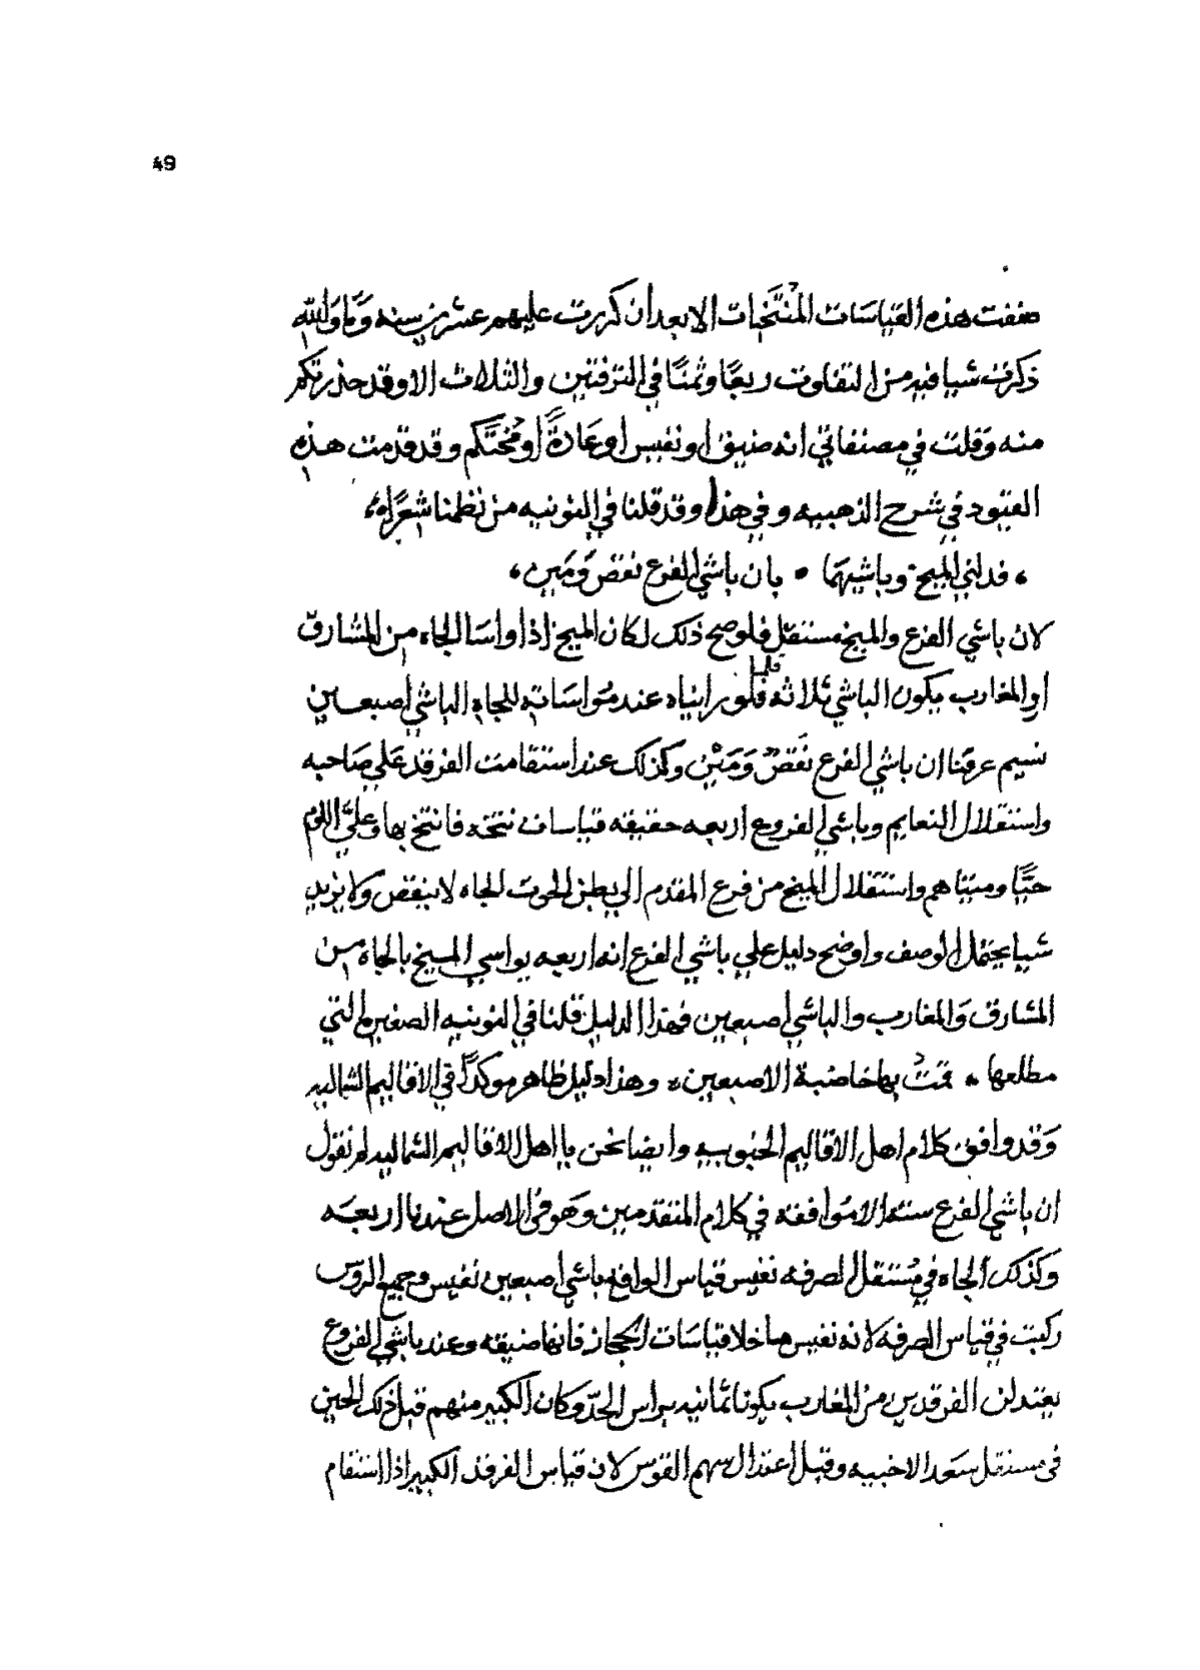 49
صففت هذه القياسات المنتخبات الا بعد ان كررت عليهم عشرين سنه وما والله
ذكرت شيا فيه من التفاوت ربعًا وثمنًا في الترفتين والثلاث الا وقد حذرتكم
منه وقلت في مصنفاتي انه ضيق او نفيس او عادةً او محتكم وقد قدمت هذه
القيود في شرح الذهبيه وفي هذا وقد قلنا في النونيه من نظمنا شعرًا
فدلني الميخ وباشيهما • بان باشي الفرع نقص ومين
لان باشي الفرع والميخ مستقل فلو صح ذلك لكان الميخ اذا واسا الجاه من المشارق
او المغارب يكون الباشي ثلاثه فلما راينا عند مواساته للجاه الباشي اصبعين
نسيم عرفنا ان باشي الفرع نقص ومين وكذلك عند استقامت الفرقد علي صاحبه
واستقلال النعايم وباشي الفروع اربعه حقيقه قياسات نتخه فانتخ بها وعليّ اللوم
حيًّا وميتا هم واستقلال الميخ من فرع المقدم الي بطن الحوت الجاه لا ينقص ولا يزيد
شيا يحتمل الوصف واوضح دليل علي باشي الفرع انه اربعه يواسي الميخ بالجاه من
المشارق والمغارب والباشي اصبعين فهذا الدليل قلنا في النونيه الصغيره التي
مطلعها • تمت بها خاضبة الاصبعين • وهذا دليل ظاهر موكدًا في الاقاليم الشماليه
وقد وافق كلام اهل الاقاليم الجنوبيه وايضا نحن يا اهل الاقاليم الشماليه لم نقول
ان باشي الفرع سته الا موافقه في كلام المتقدمين وهو في الاصل عندنا اربعه
وكذلك الجاه في مستقل الصرفه نفيس قياس الواقع باشي اصبعين نفيس وجميع الروس
ركبت في قياس الصرفه لانه نفيس ما خلا قياسات الحجاز فانها ضيقه وعند باشي الفروع
يعتدلن الفرقدين من المغارب يكونا ثمانيه براس الحدّ وكان الكبير منهم قبل ذلك الحين
في مستقل سعد الاخبيه وقبل اعتدال سهم القوس لان قياس الفرقد الكبير اذا استقام